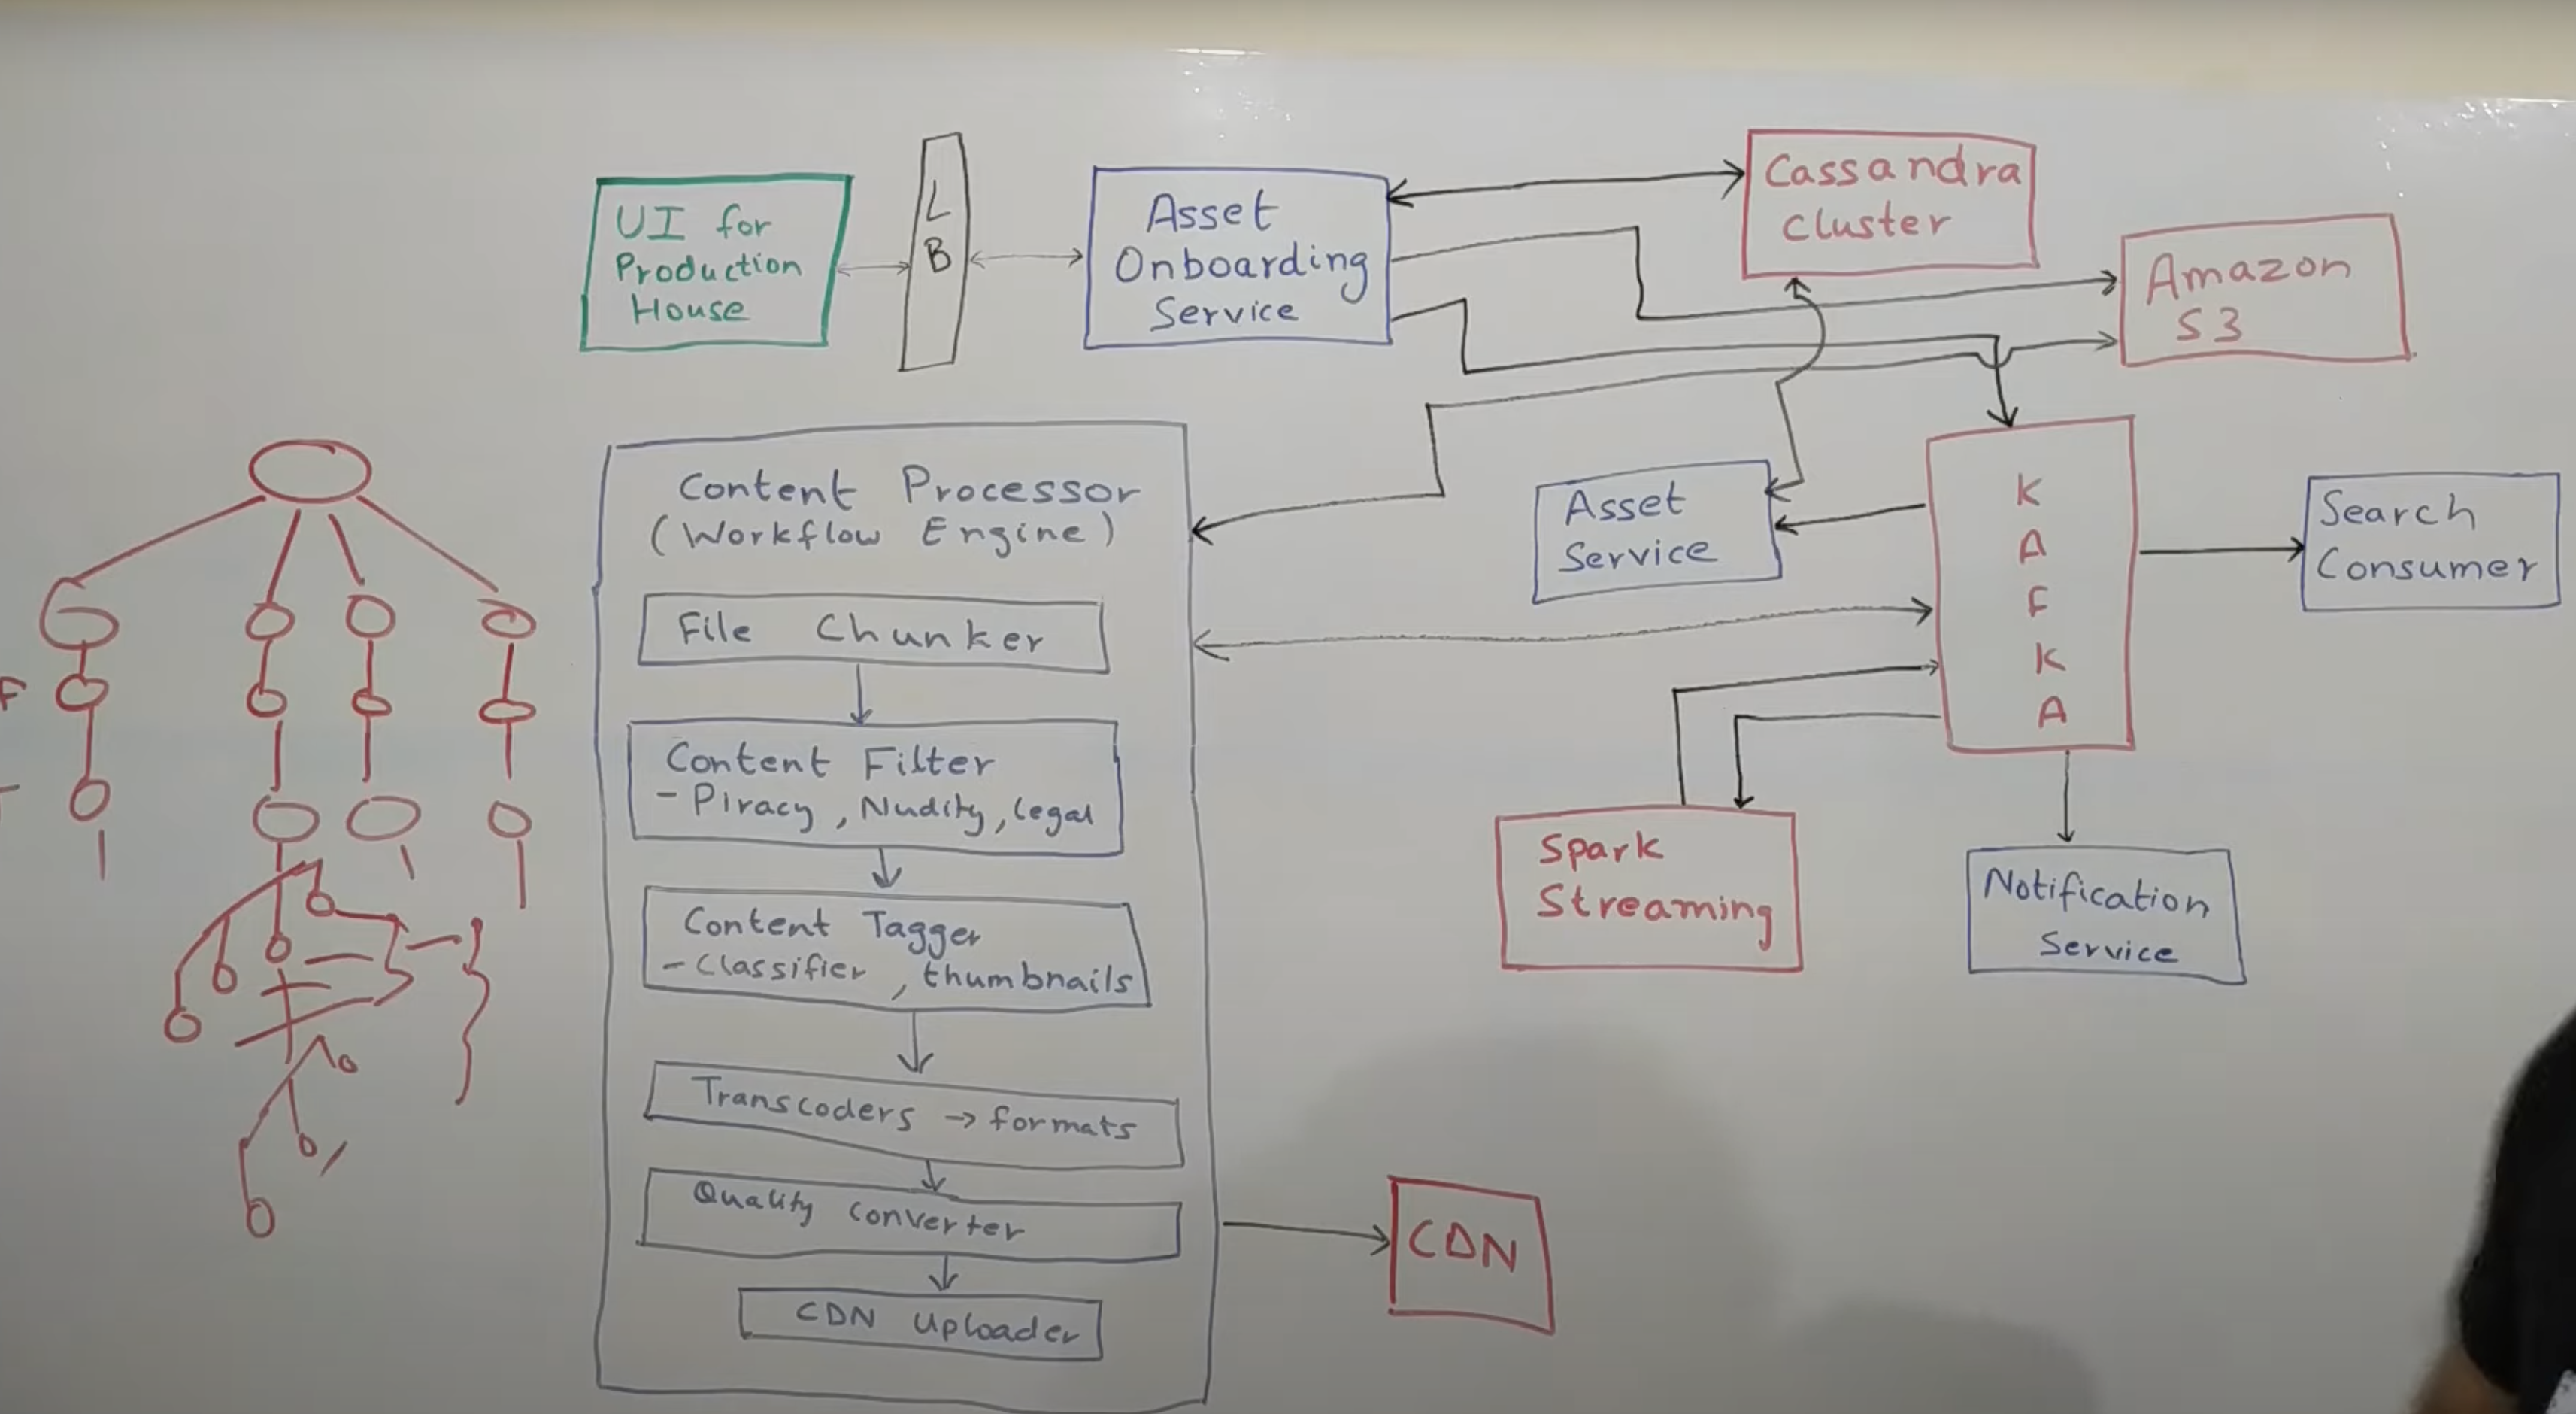 UI for
Production
House
L
B
Asset
Onboarding
Service
Cassandra
cluster
Amazon
S3
Content Processor
(Workflow Engine)
File Chunker
Content Filter
- Piracy, Nudity, legal
Content Tagger
- Classifier, thumbnails
Transcoders → formats
Quality converter
CDN Uploader
Asset
Service
K
A
F
K
A
Search
Consumer
Spark
Streaming
Notification
Service
CDN
F